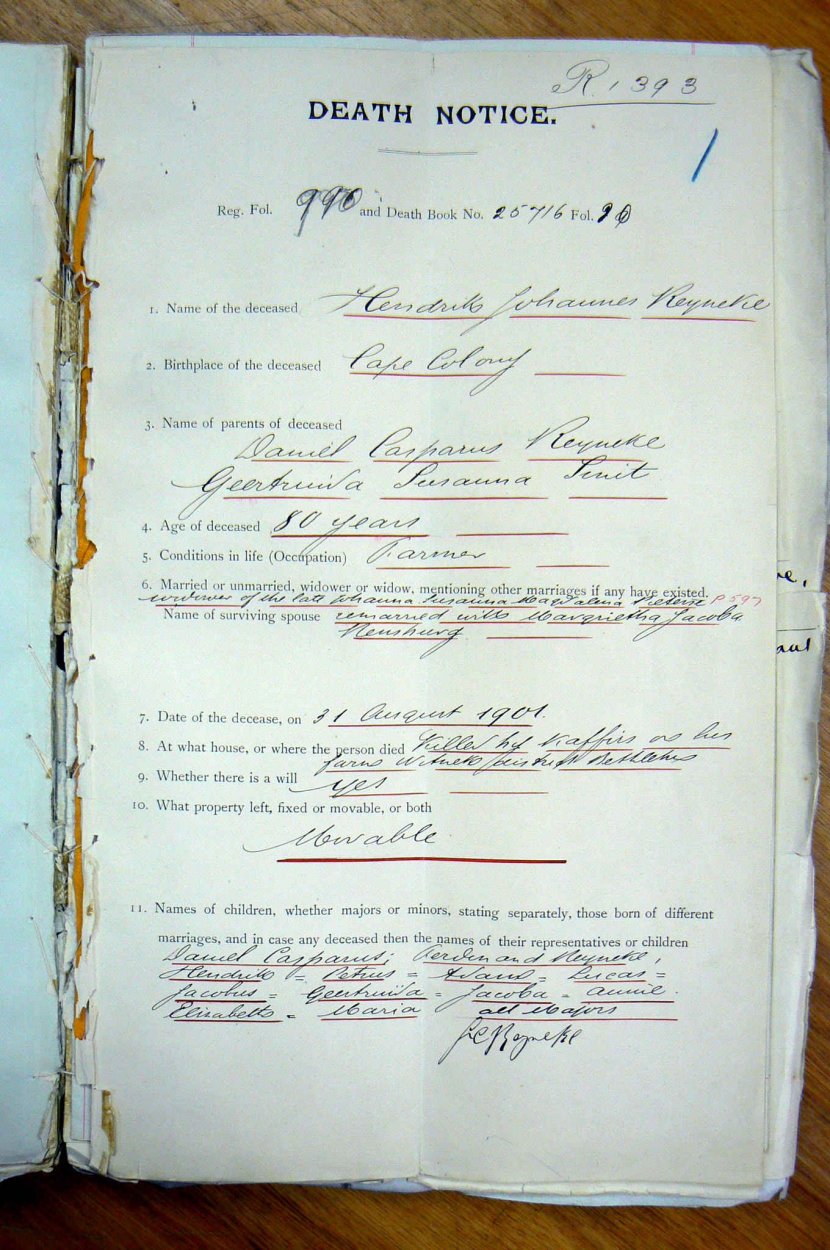 R. 1393
DEATH NOTICE.
1
Reg. Fol. 990 and Death Book No. 25716 Fol. 90
1. Name of the deceased Hendrik Johannes Reyneke
2. Birthplace of the deceased Cape Colony
3. Name of parents of deceased
Daniel Casparus Reyneke
Geertruida Susanna Smit
4. Age of deceased 80 years
5. Conditions in life (Occupation) Farmer
6. Married or unmarried, widower or widow, mentioning other marriages if any have existed.
widower of the late Johanna Susanna Magdalena Pieterse P 597
Name of surviving spouse remarried with Margrietha Jacoba
Rensburg
7. Date of the decease, on 31 August 1901.
8. At what house, or where the person died Killed by Kaffirs on his
farm Witnek district Bethlehem
9. Whether there is a will yes
10. What property left, fixed or movable, or both
Movable
11. Names of children, whether majors or minors, stating separately, those born of different
marriages, and in case any deceased then the names of their representatives or children
Daniel Casparus; Ferdinand Reyneke,
Hendrik = Petrus = Adam = Lucas =
Jacobus = Geertruida = Jacoba = Annie.
Elisabeth = Maria all Majors
Reyneke